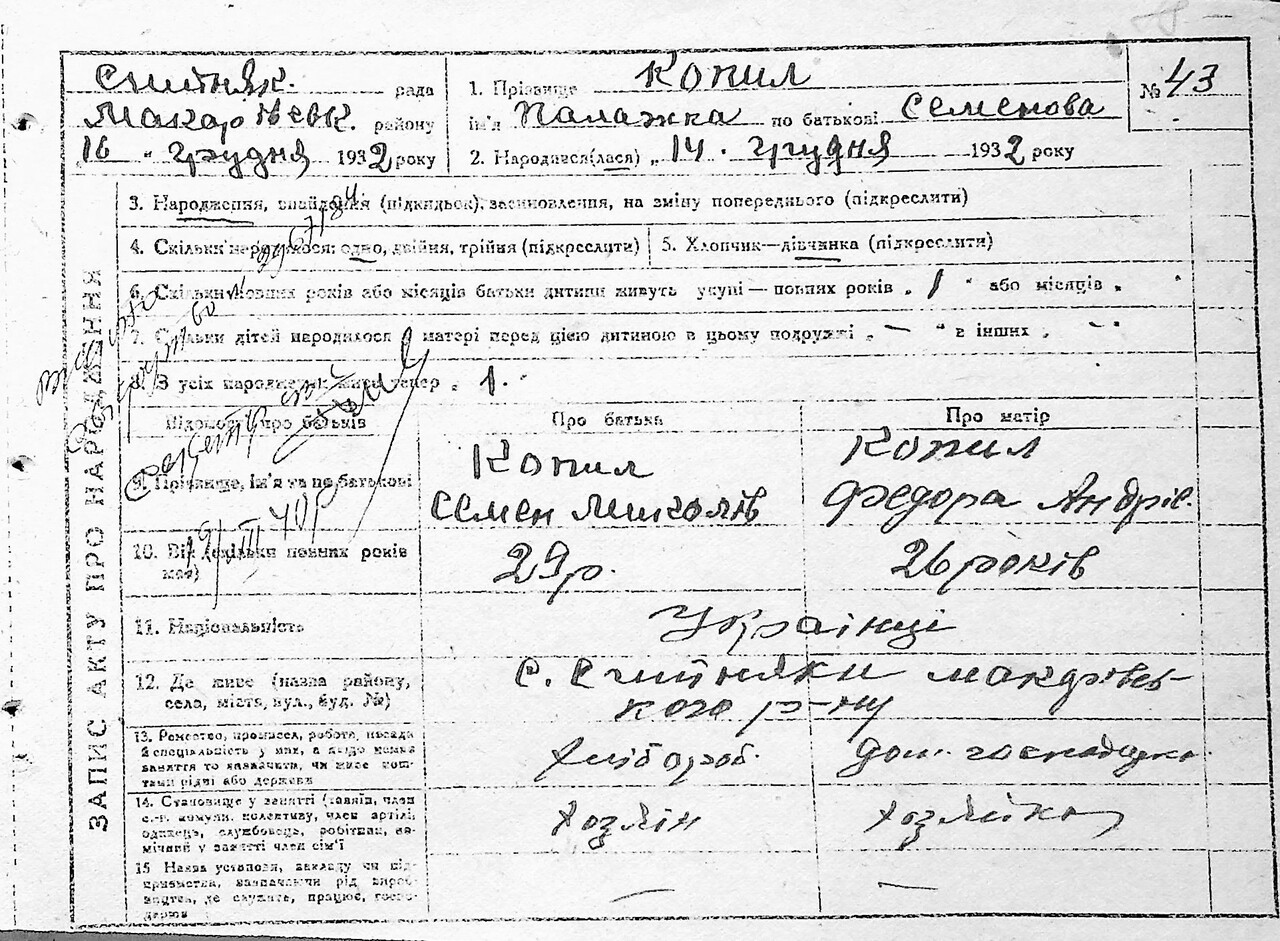 Ситняк. рада
Макарівськ. району
16 " грудня 1932 року
1. Прізвище Копил
ім'я Палажка по батькові Семенова
2. Народився(лася) „ 14 . грудня 1932 року
№ 43
ЗАПИС АКТУ ПРО НАРОДЖЕННЯ
3. Народження, знайдення (підкидьок), засиновлення, на зміну попереднього (підкреслити)
4. Скільки народилося: одно, двійня, трійня (підкреслити)
5. Хлопчик—дівчинка (підкреслити)
6. Скільки повних років або місяців батьки дитини живуть укупі — повних років „ 1 " або місяців „ "
7. Скільки дітей народилося у матері перед цією дитиною в цьому подружжі „ — " в інших „ — "
8. З усіх народжених живі тепер „ 1.
Відомості про батьків
Про батька
Про матір
9. Прізвище, ім'я та по батькові
Копил
Семен Миколів
Копил
Федора Андріє.
10. Вік (скільки повних років має)
29 р.
26 років
11. Національність
Українці
12. Де живе (назва району,
села, міста, вул., буд. №)
с. Ситняки Макарівсь-
кого р-ну
13. Ремество, промисел, робота, посада
й спеціяльність у них, а якщо немає
заняття то зазначити, чи живе кош-
тами рідні або держави
Хлібороб.
Дом. господарка
14. Становище у занятті (хазяїн, член
с.-г. комуни, колективу, член артілі,
одинець, службовець, робітник, по-
мічний у занятті член сім'ї
Хозяїн
Хозяйка
15 Назва установи, закладу чи під-
приємства, зазначаючи рід вироб-
ництва, де служить, працює, госпо-
дарює
— —